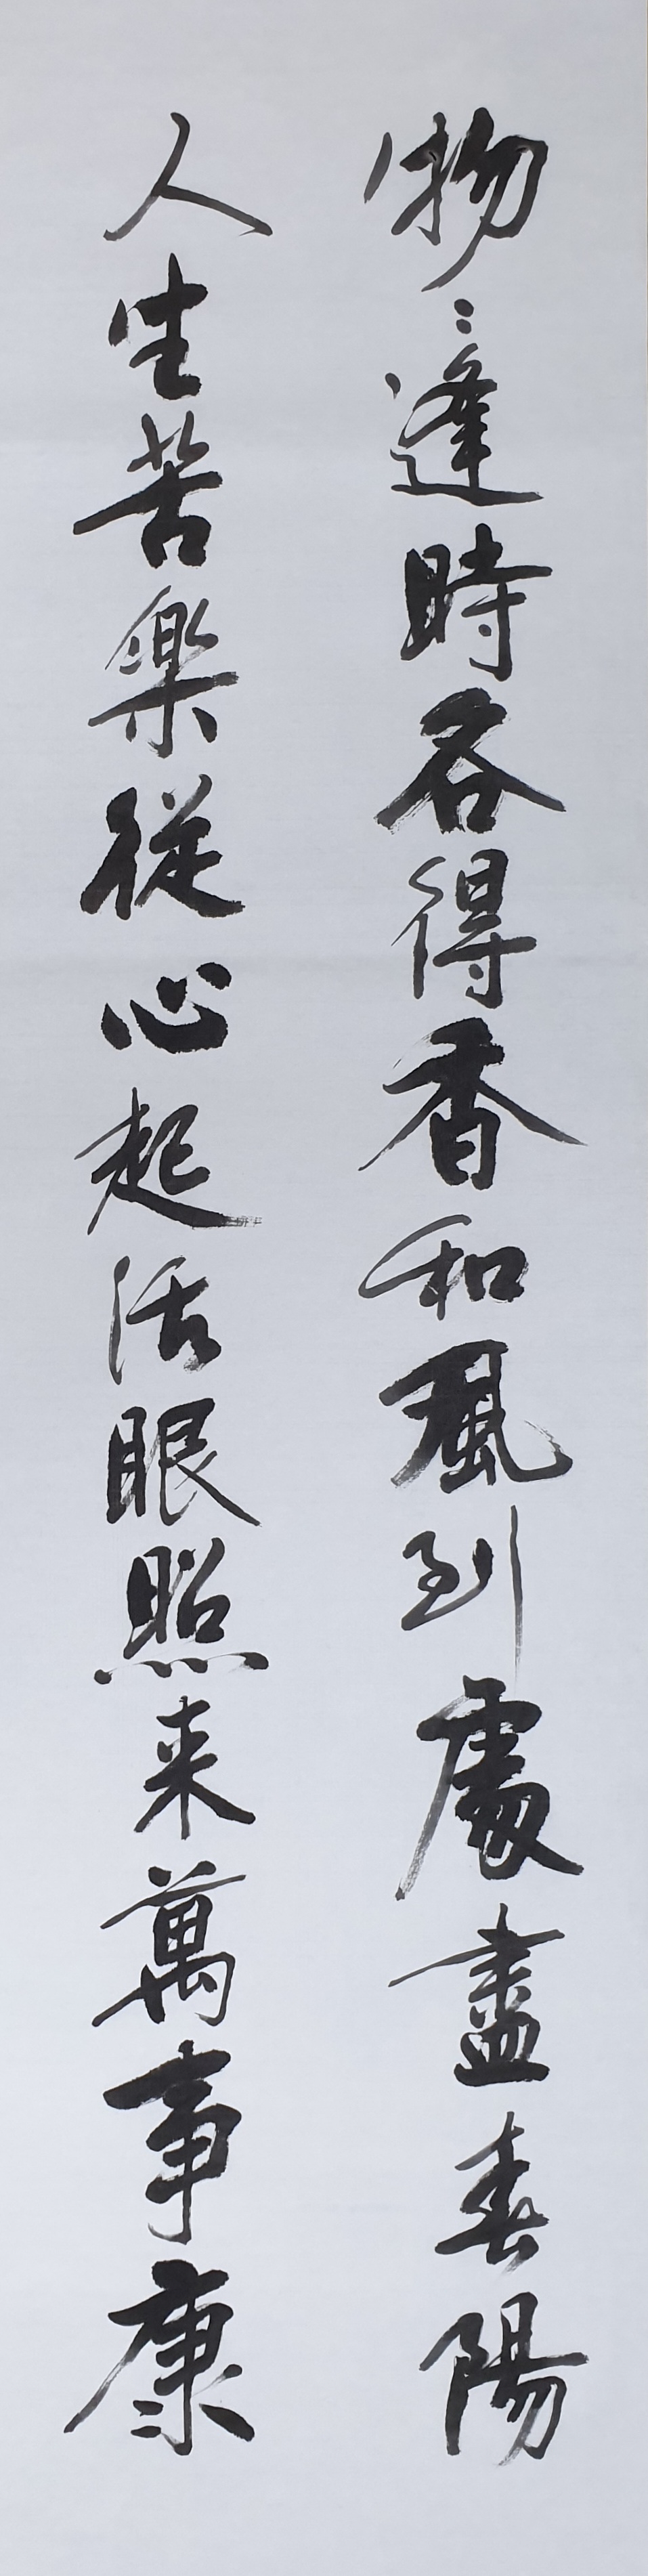 物〻逢時各得香和風到處盡春陽
人生苦樂從心起活眼照来萬事康